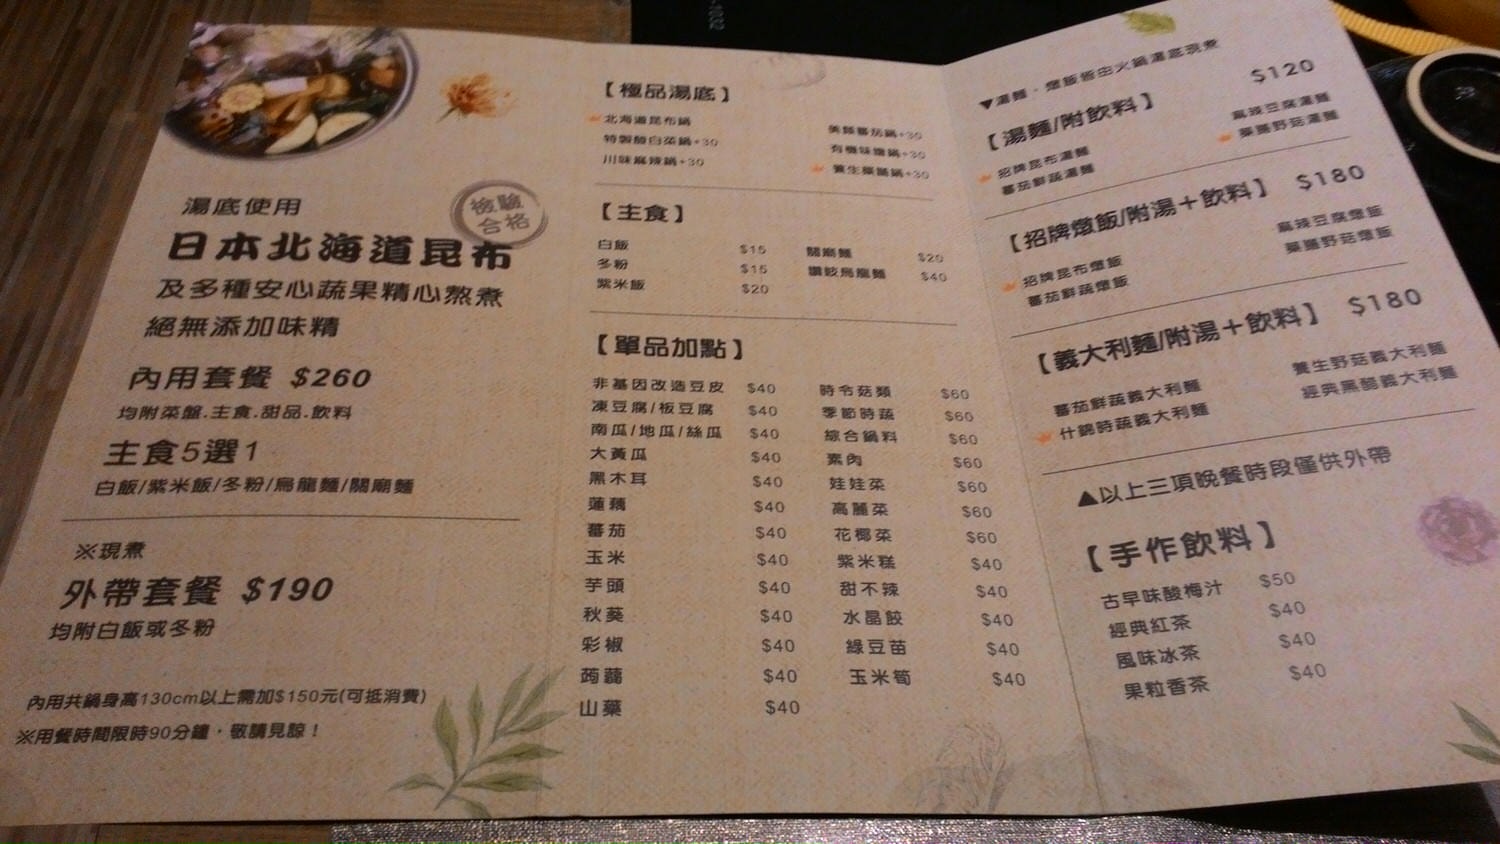 檢驗
合格
湯底使用
日本北海道昆布
及多種安心蔬果精心熬煮
絕無添加味精
內用套餐 $260
均附菜盤.主食.甜品.飲料
主食5選1
白飯/紫米飯/冬粉/烏龍麵/關廟麵
※現煮
外帶套餐 $190
均附白飯或冬粉
內用共鍋身高130cm以上需加$150元(可抵消費)
※用餐時間限時90分鐘，敬請見諒！
【極品湯底】
北海道昆布鍋
特製酸白菜鍋+30
川味麻辣鍋+30
美顏番茄鍋+30
有機味噌鍋+30
養生藥膳鍋+30
【主食】
白飯 $15
冬粉 $15
紫米飯 $20
關廟麵 $20
讚岐烏龍麵 $40
【單品加點】
非基因改造豆皮 $40
凍豆腐/板豆腐 $40
南瓜/地瓜/絲瓜 $40
大黃瓜 $40
黑木耳 $40
蓮藕 $40
蕃茄 $40
玉米 $40
芋頭 $40
秋葵 $40
彩椒 $40
蒟蒻 $40
山藥 $40
時令菇類 $60
季節時蔬 $60
綜合鍋料 $60
素肉 $60
娃娃菜 $60
高麗菜 $60
花椰菜 $60
紫米糕 $40
甜不辣 $40
水晶餃 $40
綠豆苗 $40
玉米筍 $40
▼湯麵．燉飯皆由火鍋湯底現煮
【湯麵/附飲料】 $120
招牌昆布湯麵
蕃茄鮮蔬湯麵
麻辣豆腐湯麵
藥膳野菇湯麵
【招牌燉飯/附湯＋飲料】 $180
招牌昆布燉飯
蕃茄鮮蔬燉飯
麻辣豆腐燉飯
藥膳野菇燉飯
【義大利麵/附湯＋飲料】 $180
蕃茄鮮蔬義大利麵
什錦時蔬義大利麵
養生野菇義大利麵
經典黑醋義大利麵
▲以上三項晚餐時段僅供外帶
【手作飲料】
古早味酸梅汁 $50
經典紅茶 $40
風味冰茶 $40
果粒香茶 $40